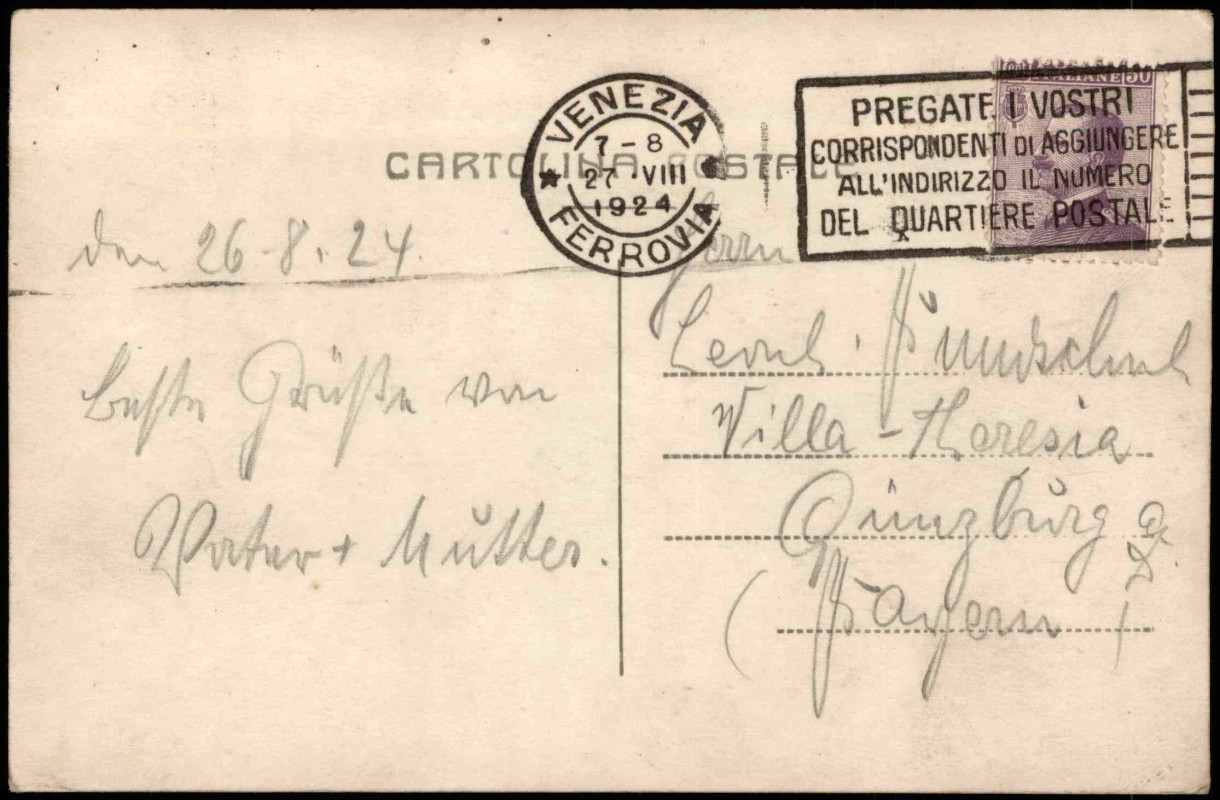 CARTOLINA POSTALE
VENEZIA
7-8
27 VIII
1924
FERROVIA
POSTE ITALIANE 50
PREGATE I VOSTRI
CORRISPONDENTI DI AGGIUNGERE
ALL'INDIRIZZO IL NUMERO
DEL QUARTIERE POSTALE
den 26.8.24.
beste Grüße von
Vater + Mutter.
Herrn
Leonh.
Villa-Theresia
Günzburg a. D.
(Bayern)